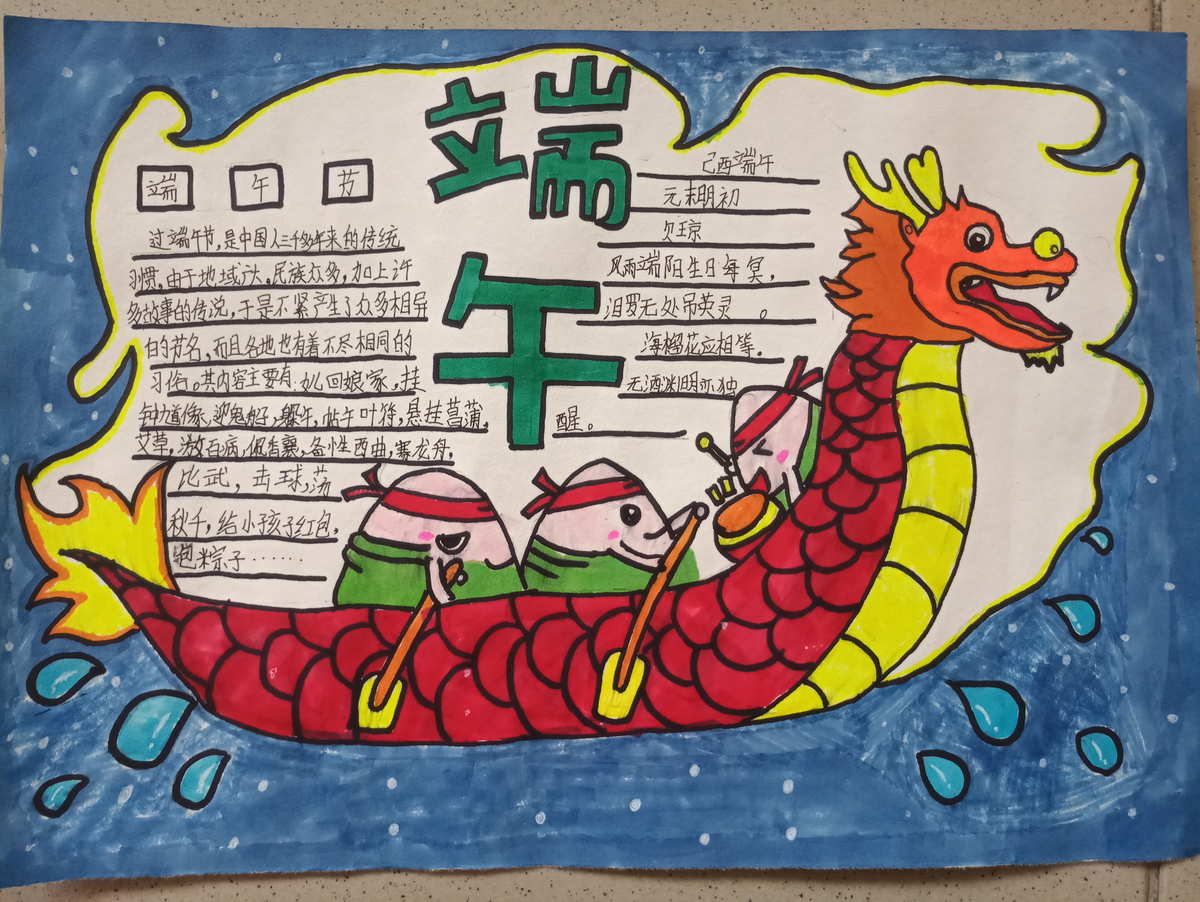 端午
端 午 节
过端午节,是中国人三千多年来的传统
习惯,由于地域大,民族众多,加上许
多故事的传说,于是不紧产生了众多相异
的节名,而且各地也有着不尽相同的
习俗。其内容主要有:女儿回娘家,挂
钟馗像,迎鬼船,躲午,帖午叶符,悬挂菖蒲,
艾草,游百病,佩香囊,备牲西曲,赛龙舟,
比武,击球,荡
秋千,给小孩子红包,
包粽子……
己酉端午
元末明初
贝琼
风雨端阳生日年冥,
汨罗无处吊英灵。
海榴花应相笑,
无酒渊明亦独
醒。